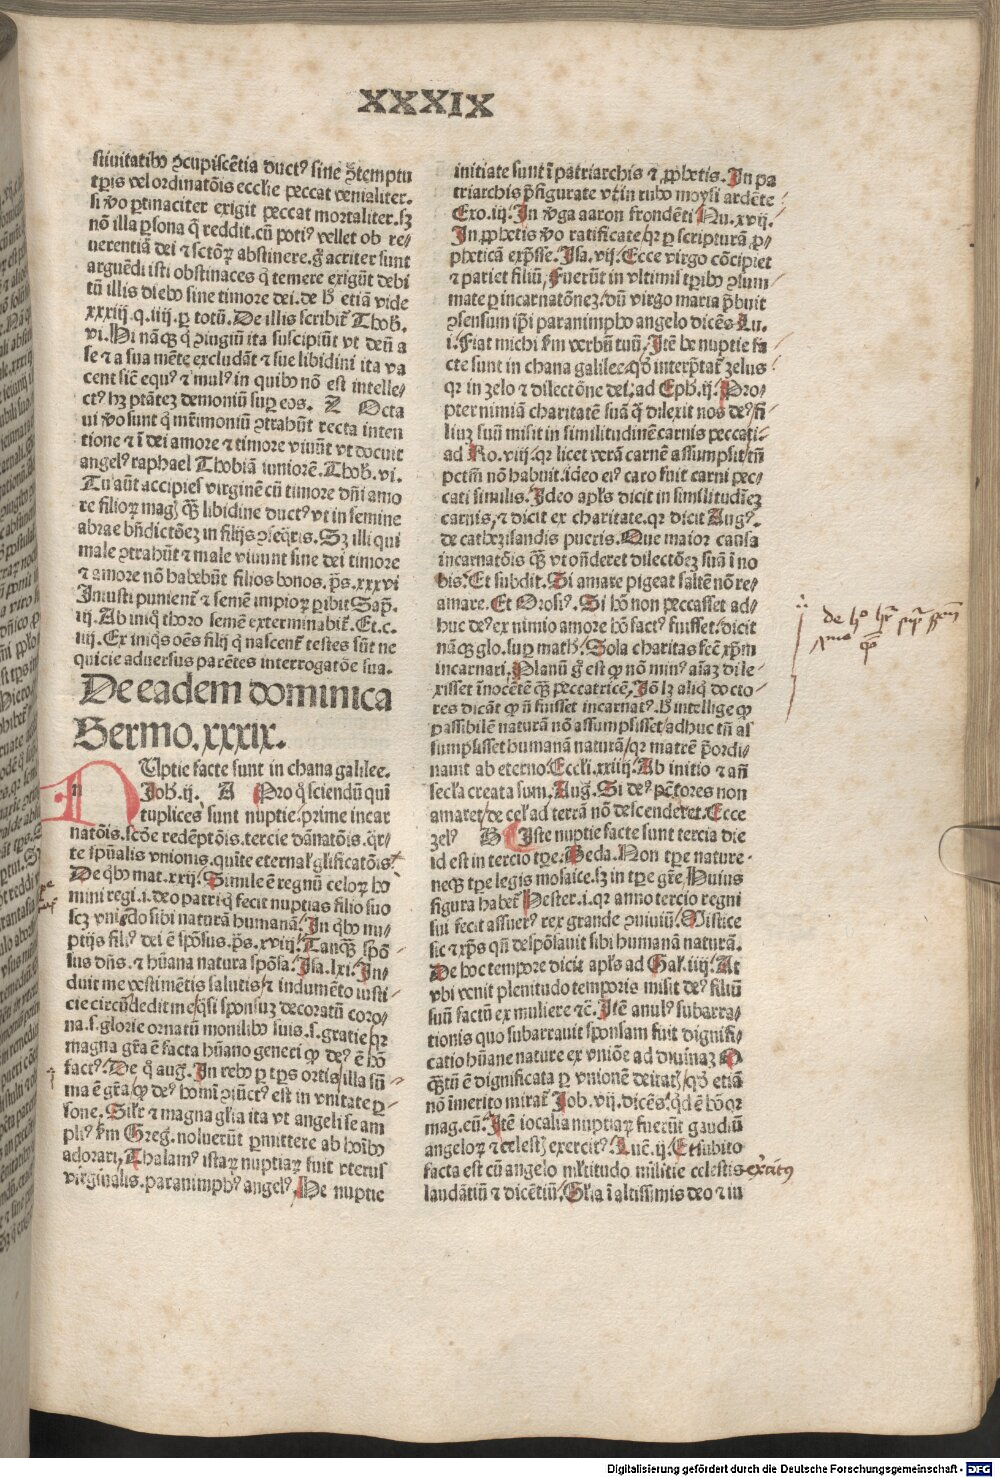 XXXIX
stiuitatibꝰ ꝯcupiscētia ductꝰ sine ꝯtemptu
tꝑis vel ordinatōis ecclie peccat venialiter.
si ꝟo ꝑtinaciter exigit peccat mortaliter. sꝫ
nō illa ꝑsona q̄ reddit. cū potiꝰ vellet ob re/
uerentiā dei ⁊ sctōꝝ abstinere. g̊ acriter sunt
arguēdi isti obstinaces q̇ temere exigūt debi
tū illis diebꝰ sine timore dei. de hͦ etiā vide
xxxiij. q. iiij. ꝑ totū. De illis scribit᷑ Thob̄.
vi. Hi nāqꝫ q̇ ꝯiugiū ita suscipiūt vt deū a
se ⁊ a sua mēte excludāt ⁊ sue libidini ita va
cent sic̄ equꝰ ⁊ mulꝰ in quibꝰ nō est intelle/
ctꝰ hꝫ ptātez demoniū suꝑ eos. Z Octa
ui ꝟo sunt q̇ mr̄imoniū ꝯtrahūt recta inten
tione ⁊ ī dei amore ⁊ timore viuūt vt docuit
angelꝰ raphael Thobiā iuniorē. Thob̄. vi.
Tu aūt accipies virginē cū timore dn̄i amo
re filioꝝ magꝭ qꝫ̄ libidine ductꝰ vt in semine
abrae bn̄dictōez in filijs ꝯseq̄ris. Sꝫ illi qui
male ꝯtrahūt ⁊ male viuunt sine dei timore
⁊ amore nō habebūt filios bonos. p̄s. xxxvi
Iniusti punient᷑ ⁊ semē impioꝝ ꝑibit Sap̄.
iij. Ab iniq̊ thoro semē exterminabit᷑. Et. c.
iiij. Ex iniq̇s oēs filij q̇ nascent᷑ testes sūt ne
quicie aduersus parētes interrogatōe sua.
De eadem dominica
Sermo. xxxix.
n Uptie facte sunt in chana galilee.
Joh̄. ij. A Pro q̊ sciendū qui
tuplices sunt nuptie. prime incar
natōis. scōe redēptōis. tercie dānatōis. q̄r/
te spūalis vnionis. quīte eternaꝭ glīficatōis.
De qͥbꝰ mat. xxij. Simile ē regnū celoꝝ hō
mini regi. i. deo patri q̇ fecit nuptias filio suo
scꝫ vniēdo sibi naturā humanā. In qͥbꝰ nu/
ptijs filiꝰ dei ē spōsus. p̄s. xviij. Tanqꝫ̄ spō
sus dn̄s. ⁊ hūana natura spōsa. Isa. lxi. In/
duit me vestimētis salutis ⁊ indumēto iusti/
cie circūdedit me q̄si sponsuz decoratū coro/
na. s. glorie ornatū monilibꝰ suis. s. gratie qꝛ
magna gr̄a ē facta hūano generi ꝙ deꝰ ē hō
factꝰ. De q̊ aug̊. In rebꝰ ꝑ tꝑs ortis illa sū/
ma ē gr̄a ꝙ deꝰ homī ꝯiūctꝰ est in vnitate ꝑ/
sone. Sil̄r ⁊ magna gl̄ia ita vt angeli se am
pliꝰ ẜm Greg̊. noluerūt ꝑmittere ab hoībꝰ
adorari. Thalamꝰ istaꝝ nuptiaꝝ fuit vterus
virginalis. paranimphꝰ angelꝰ. He nuptie
initiate sunt ī patriarchis ⁊ ꝓphetis. In pa
triarchis p̄figurate vt in rubo moysi ardēte
Exo. iij. In ꝟga aaron frondēti Nu. xvij.
In ꝓphetis ꝟo ratificate qꝛ ꝑ scripturā ꝓ/
pheticā exp̄sse. Isa. vij. Ecce virgo cōcipiet
⁊ pariet filiū. Fuerūt in vltimis tꝑibꝰ ꝯsum
mate ꝑ incarnatōnez dū virgo maria p̄buit
ꝯsensum ip̄i paranimpho angelo dicēs Lu.
i. Fiat michi ẜm verbū tuū. Itē he nuptie fa
cte sunt in chana galilee. qd̊ interp̄tat᷑ zelus
qꝛ in zelo ⁊ dilectōne dei. ad Eph̄. ij. Pro/
pter nimiā charitatē suā q̄ dilexit nos deꝰ fi/
liuz suū misit in similitudinē carnis peccati.
ad Ro. viij. qꝛ licet verā carnē assumpsit tn̄
pctm̄ nō habuit. ideo eiꝰ caro fuit carni pec/
cati similis. Ideo apl̄s dicit in similitudīez
carnis. ⁊ dicit ex charitate. qꝛ dicit Augꝰ.
de cathezisandis pueris. Que maior causa
incarnatōis qꝫ̄ vt on̄deret dilectōez suā ī no
bis. Et subdit. Si amare pigeat saltē nō re/
amare. Et Orosiꝰ. Si hō non peccasset ad/
huc deꝰ ex nimio amore hō factꝰ fuisset. dicit
nāqꝫ glo. suꝑ math̄. Sola charitas fec̄ xp̄m
incarnari. Planū g̊ est ꝙ nō minꝰ aīaz dile/
xisset īnocētē qꝫ̄ peccatricē. Iō lꝫ aliq̇ docto/
res dicāt ꝙ n̄ fuisset incarnatꝰ. hͦ intellige ꝙ
passibilē naturā nō assumpsisset adhuc tn̄ as
sumpsisset humanā naturā qꝛ matrē p̄ordi/
nauit ab eterno. Eccl̄i. xxiiij. Ab initio ⁊ an̄
secl̄a creata sum. Aug̊. Si deꝰ pctōres non
amaret de celꝭ ad terrā nō descenderet. Ecce
zelꝰ B Iste nuptie facte sunt tercia die
id est in tercio tꝑe. Beda. Non tꝑe nature
neqꝫ tꝑe legis mosaice. sꝫ in tꝑe gr̄e Huius
figura habet᷑ Hester. i. qꝛ anno tercio regni
sui fecit assuerꝰ rex grande ꝯuiuiū. Mistice
sic ⁊ xp̄s qn̄ despōsauit sibi humanā naturā.
De hoc tempore dicit apl̄s ad Gal̄. iiij. At
vbi venit plenitudo temporis misit deꝰ filiū
suū factū ex muliere ⁊c̄. Itē anulꝰ subarra/
tionis quo subarrauit sponsam fuit dignifi/
catio hūane nature ex vniōe ad diuinaz O
qꝫ̄tū ē dignificata ꝑ vnionē deitatꝭ qd̊ etiā
nō īmerito mirat᷑ Job. vij. dicēs. qͥd ē hō qꝛ
mag. eū. Itē iocalia nuptiaꝝ fuerūt gaudiū
angeloꝝ ⁊ celestꝭ exercitꝰ. Luc̄. ij. Et subito
facta est cū angelo ml̄titudo militie celestis exercitus
laudātiū ⁊ dicētiū. Gl̄ia ī altissimis deo ⁊ in
Digitalisierung gefördert durch die Deutsche Forschungsgemeinschaft - DFG